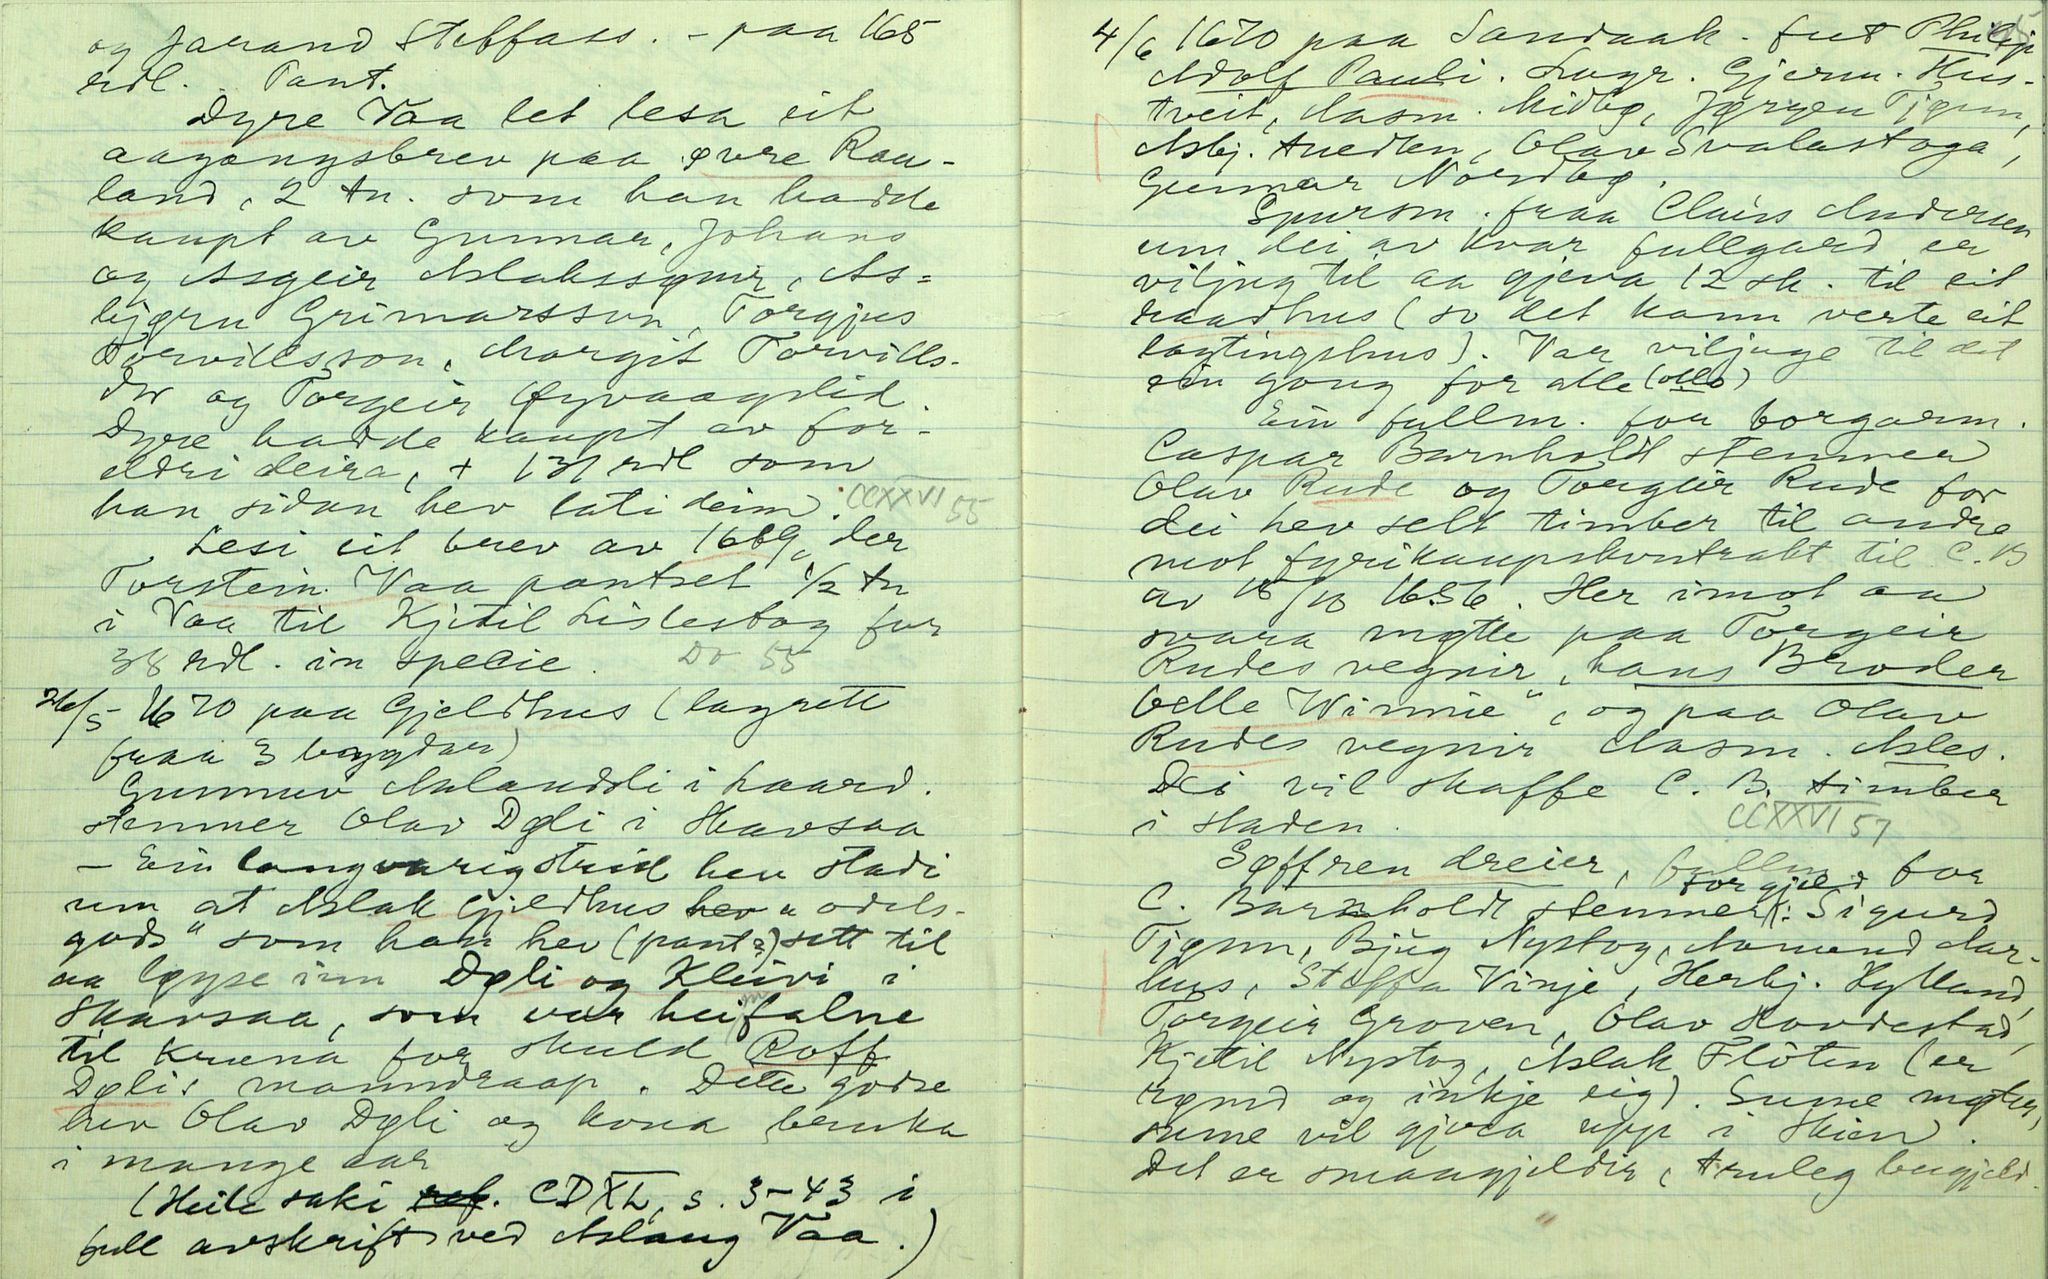 og Jarand Steffass. - paa 165
rdl. Pant.
Dyre Vaa let lesa eit
aagangsbrev paa øvre Rau-
land, 2 tn. som han hadde
kaupt av Gunnar, Johans
og Asgeir Aslakssønir, As-
bjørn Grimarsson, Torgjus
Torvillsson, Margit Torvills-
dtr og Torgeir Øyvaagslid.
Dyre hadde kaupt av for-
eldri deira, + 131 rdl som
han sidan hev lati deim. CCXXVI 55
Lesi eit brev av 1669, der
Torstein Vaa pantset 1/2 tn
i Vaa til Kjetil Lislestog for
38 rdl. in specie. Do 55
26/5 1670 paa Gjeldhus (lagrett
fraa 3 bygdar)
Gunnuv Aslandsli i Laard.
stemner Olav Døli i Skavsaa
- Ein langvarig strid hev stadi
um at Aslak Gjeldhus hev "odels-
gods" som han hev (pant?) sett til
aa løyse inn Døli og Kleivi i
Skavsaa, som var heimfalne
til kruna for skuld Roff
Dølis manndraap. Dette godse
hev Olav Døli og kona bruka
i mange aar
(Heile saki ref. CDXL, s. 3-43 i
full avskrift ved Aslaug Vaa.)
4/6 1670 paa Sandaak. fut Philip
Adolf Pauli. Lagr. Gjerm. Hus-
tveit, Aasm. Midbø, Jørgen Tjønn,
Asbj. ANedlen, Olav Svalastoga,
Gunnar Nordbø.
Spursm. fraa Claus Andersen
um dei av kvar fullgard er
viljug til aa gjeva 12 sk. til eit
raadhus (so det kann verte eit
lagtingshus). Var viljuge til det
ein gong for alle (olla)
Ein fullm. for borgarm.
Caspar Barnholdt stemner
Olav Rude og Torgeir Rude for
dei hev selt timber til andre
mot fyrikaupskontrakt til C. B
av 15/10 1656. Her imot aa
svara møtte paa Torgeir
Rudes vegnir "hans Broder
Velle Winnie", og paa Olav
Rudes vegnir Aasm. Aales.
Dei vil skaffe C. B. timber
i staden. CCXXVI 57
Søffren dreier, fullm. for
C. Barnholdt stemner for gjeld: Sigurd
Tjønn, Bjug Nystog, Aamund Aar-
hus, Steffa Vinje, Herbj. Hylland,
Torgeir Groven, Olav Hovdestad,
Kjetil Nystog, Aslak Flóten (er
rømd og inkje eig). Sume møter,
sume vil gjera upp i Skien.
Det er smaagjeldir, truleg bugjeld.